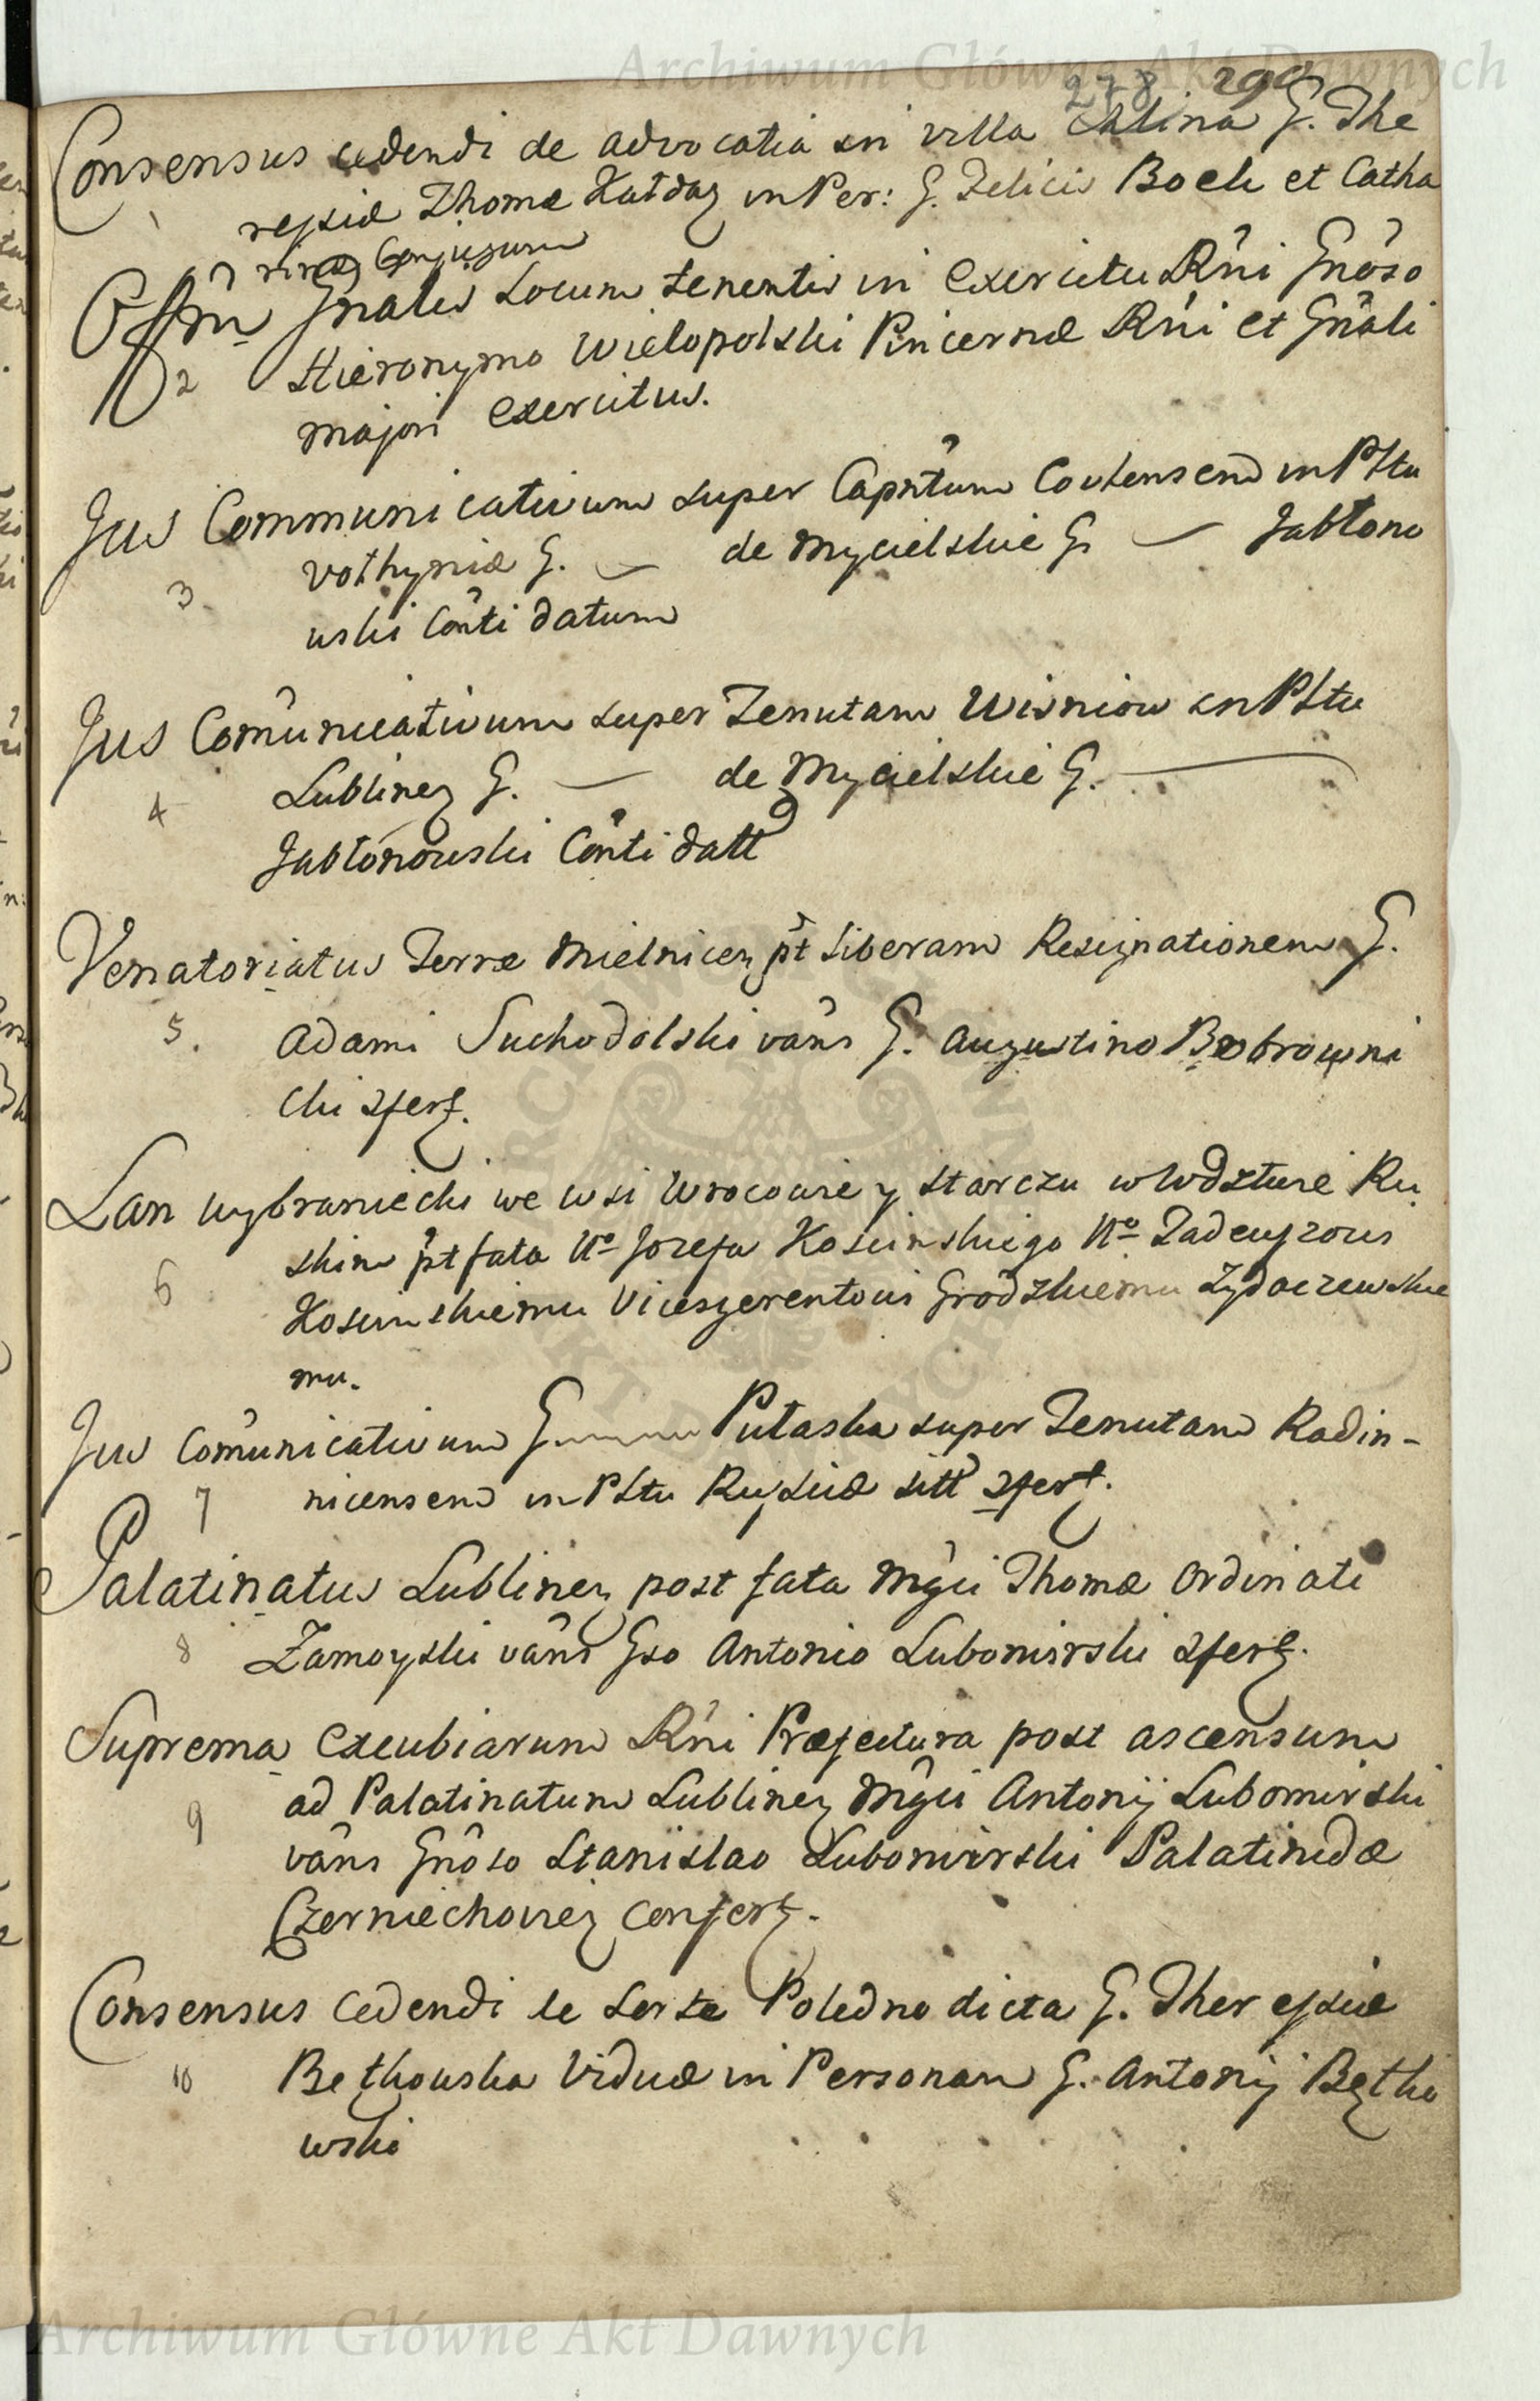 Archiwum Główne Akt Dawnych
278 290
Consensus cedendi de advocatia in villa Chlina G. The
1 resiæ Thomæ Kałdaz in Per: G. Felicis Boch et Catha
rinæ Conjugum
Offm Gnalis Locum tenentis in Exercitu Rni Gnoso
2 Hieronymo Wielopolski Pincernæ Rni et Gnali
majori Exercitus.
Jus Communicativum super Captum Covlensem in Pltu
3. Volhyniæ G. — de Mycielskie G. — Jabłono
wski Conti datum
Jus Comunicativum super Tenutam Wisniow in Pltu
4 Lublinen G. — de Mycielskie G. —
Jabłonowski Conti datt
Venatoriatus Terræ Mielnicen pt liberam Resignationem G.
5. Adami Suchodolski vans G. Augustino Bobrowni
cki sfert.
Łan wybraniecki we wsi Wrocowie y Starczu w Wdztwie Ru
6 skim pt fata Uo Jozefa Kosinskiego Uo Tadeuszowi
Kosinskiemu Vicesgerentowi Grodzkiemu Zydaczewskie
mu.
Jus Comunicativum G Putaska super Tenutam Radin-
7 nicensem in Pltu Russiæ sitt sfert.
Palatinatus Lublinen post fata Mgci Thomæ Ordinati
8 Zamoyski vans Gso Antonio Lubomirski sfert.
Suprema Excubiarum Rni Præfectura post ascensum
9 ad Palatinatum Lublinen Mgci Antonij Lubomirski
vans Gnoso Stanislao Lubomirski Palatinidæ
Czerniechovien confert.
Consensus cedendi de Sorte Poledno dicta G. Theresiæ
10 Bethowska Viduæ in Personam G. Antonij Bętko
wski
Archiwum Główne Akt Dawnych